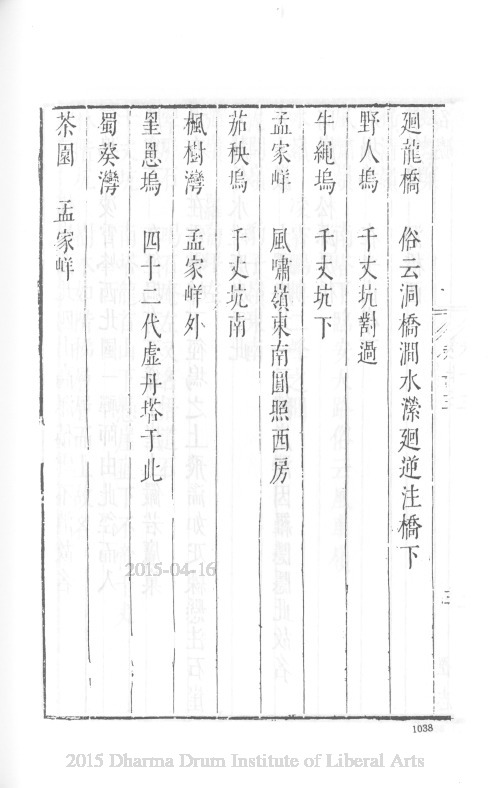 廻龍橋　俗云洞橋澗水瀠廻逆注橋下
野人塢　千丈坑對過
牛繩塢　千丈坑下
孟家𡶴　風嘯嶺東南圓照西房
茄秧塢　千丈坑南
楓樹灣　孟家𡶴外
罣恩塢　四十二代虛丹塔于此
蜀葵灣
茶園　孟家𡶴
三
1038
2015-04-16
2015 Dharma Drum Institute of Liberal Arts